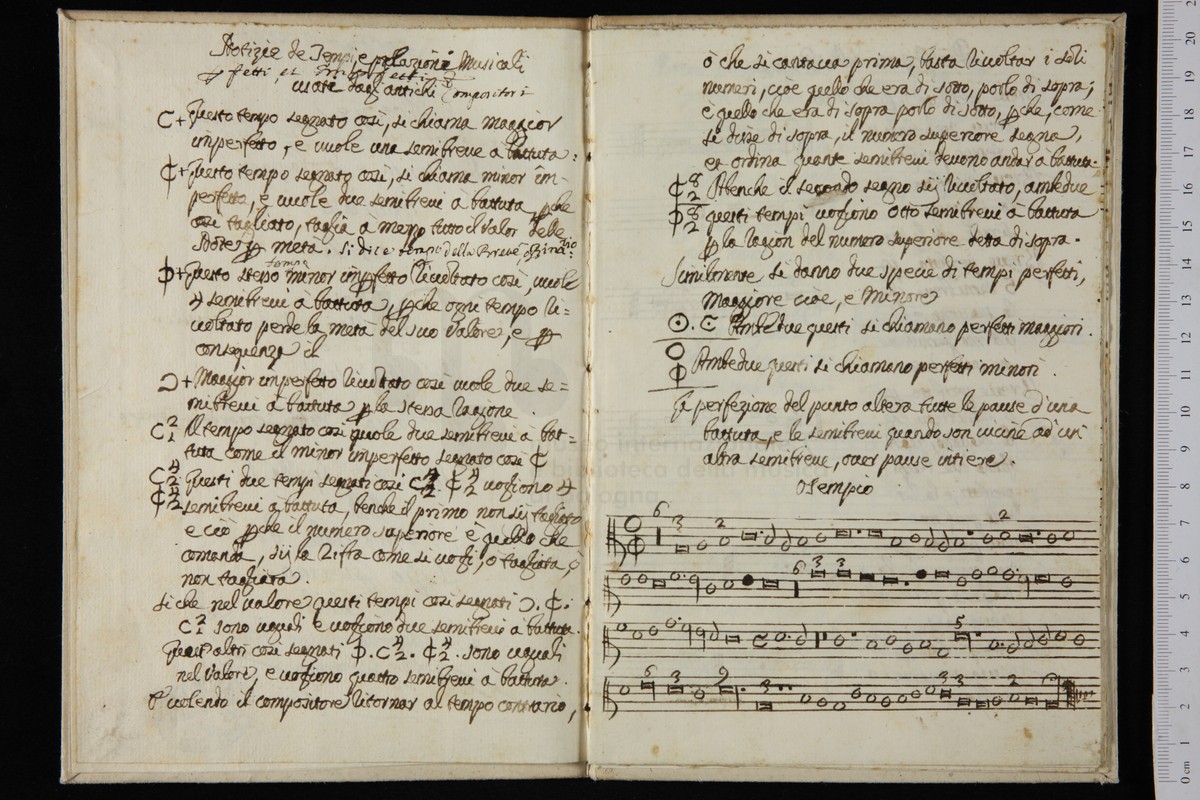 Notizie de Tempi, e prolazioni Musicali
usate dagl'antichi Compositori
C+ Questo tempo segnato così, si chiama maggior
imperfetto, e vuole una semibreve à battuta:
₵+ Questo tempo segnato così, si chiama minor im-
perfetto, e vuole due semibrevi à battuta, pche
così tagliato, taglia à mezzo tutto il valor delle
Note p metà. Si dice tempo della Breve, ò Binario
tempo
+ Questo stesso minor impfetto rivoltato così, vuole
4 semibrevi à battuta, pche ogni tempo ri=
voltato perde la metà del suo valore, e p
conseguenza il
Ɔ+ Maggior imperfetto rivoltato così vuole due se=
mibrevi à battuta p la stessa ragione.
C 2/1 Il tempo segnato così vuole due semibrevi à bat=
tuta come il minor imperfetto segnato così ₵
C 4/2 Questi due tempi segnati così C 4/2. ₵ 4/2 vogliono 4
₵ 4/2 semibrevi à battuta, benche il primo non sij tagliato
e ciò pche il numero superiore è quello che
comanda, sij la Zifra come si vogli, o tagliata, ò
non tagliata.
Si che nel valore questi tempi così segnati Ɔ. ₵.
C 2/1 sono uguali e vogliono due semibrevi à battuta.
Quest'altri così segnati . C 4/2. ₵ 4/2. sono uguali
nel valore, e vogliono quattro semibrevi à battuta.
E volendo il compositore ritornar al tempo contrario,
ò che si cantava prima, basta rivoltar i soli
numeri, cioè quello che era di sotto, porlo di sopra;
e quello che era di sopra porlo di sotto, pche, come
si disse di sopra, il numero superiore segna,
ed ordina quante semibrevi devono andar à battuta.
₵ 8/2 Abenche il secondo segno sij rivoltato, ambedue
8/2 questi tempi vogliono otto semibrevi à battuta
p la ragion del numero superiore detta di sopra.
Similmente si danno due specie di tempi perfetti,
Maggiore cioè, e Minore
⊙. C Ambedue questi si chiamano perfetti maggiori.
O Ambedue questi si chiamano perfetti minori.
La perfezione del punto altera tutte le pause d'una
battuta, e le semibrevi quando son vicine ad un
altra semibreve, over pause intiere.
Esempio
6 3 2 2
6 3 3
5
6 3 2 3 3 3 2